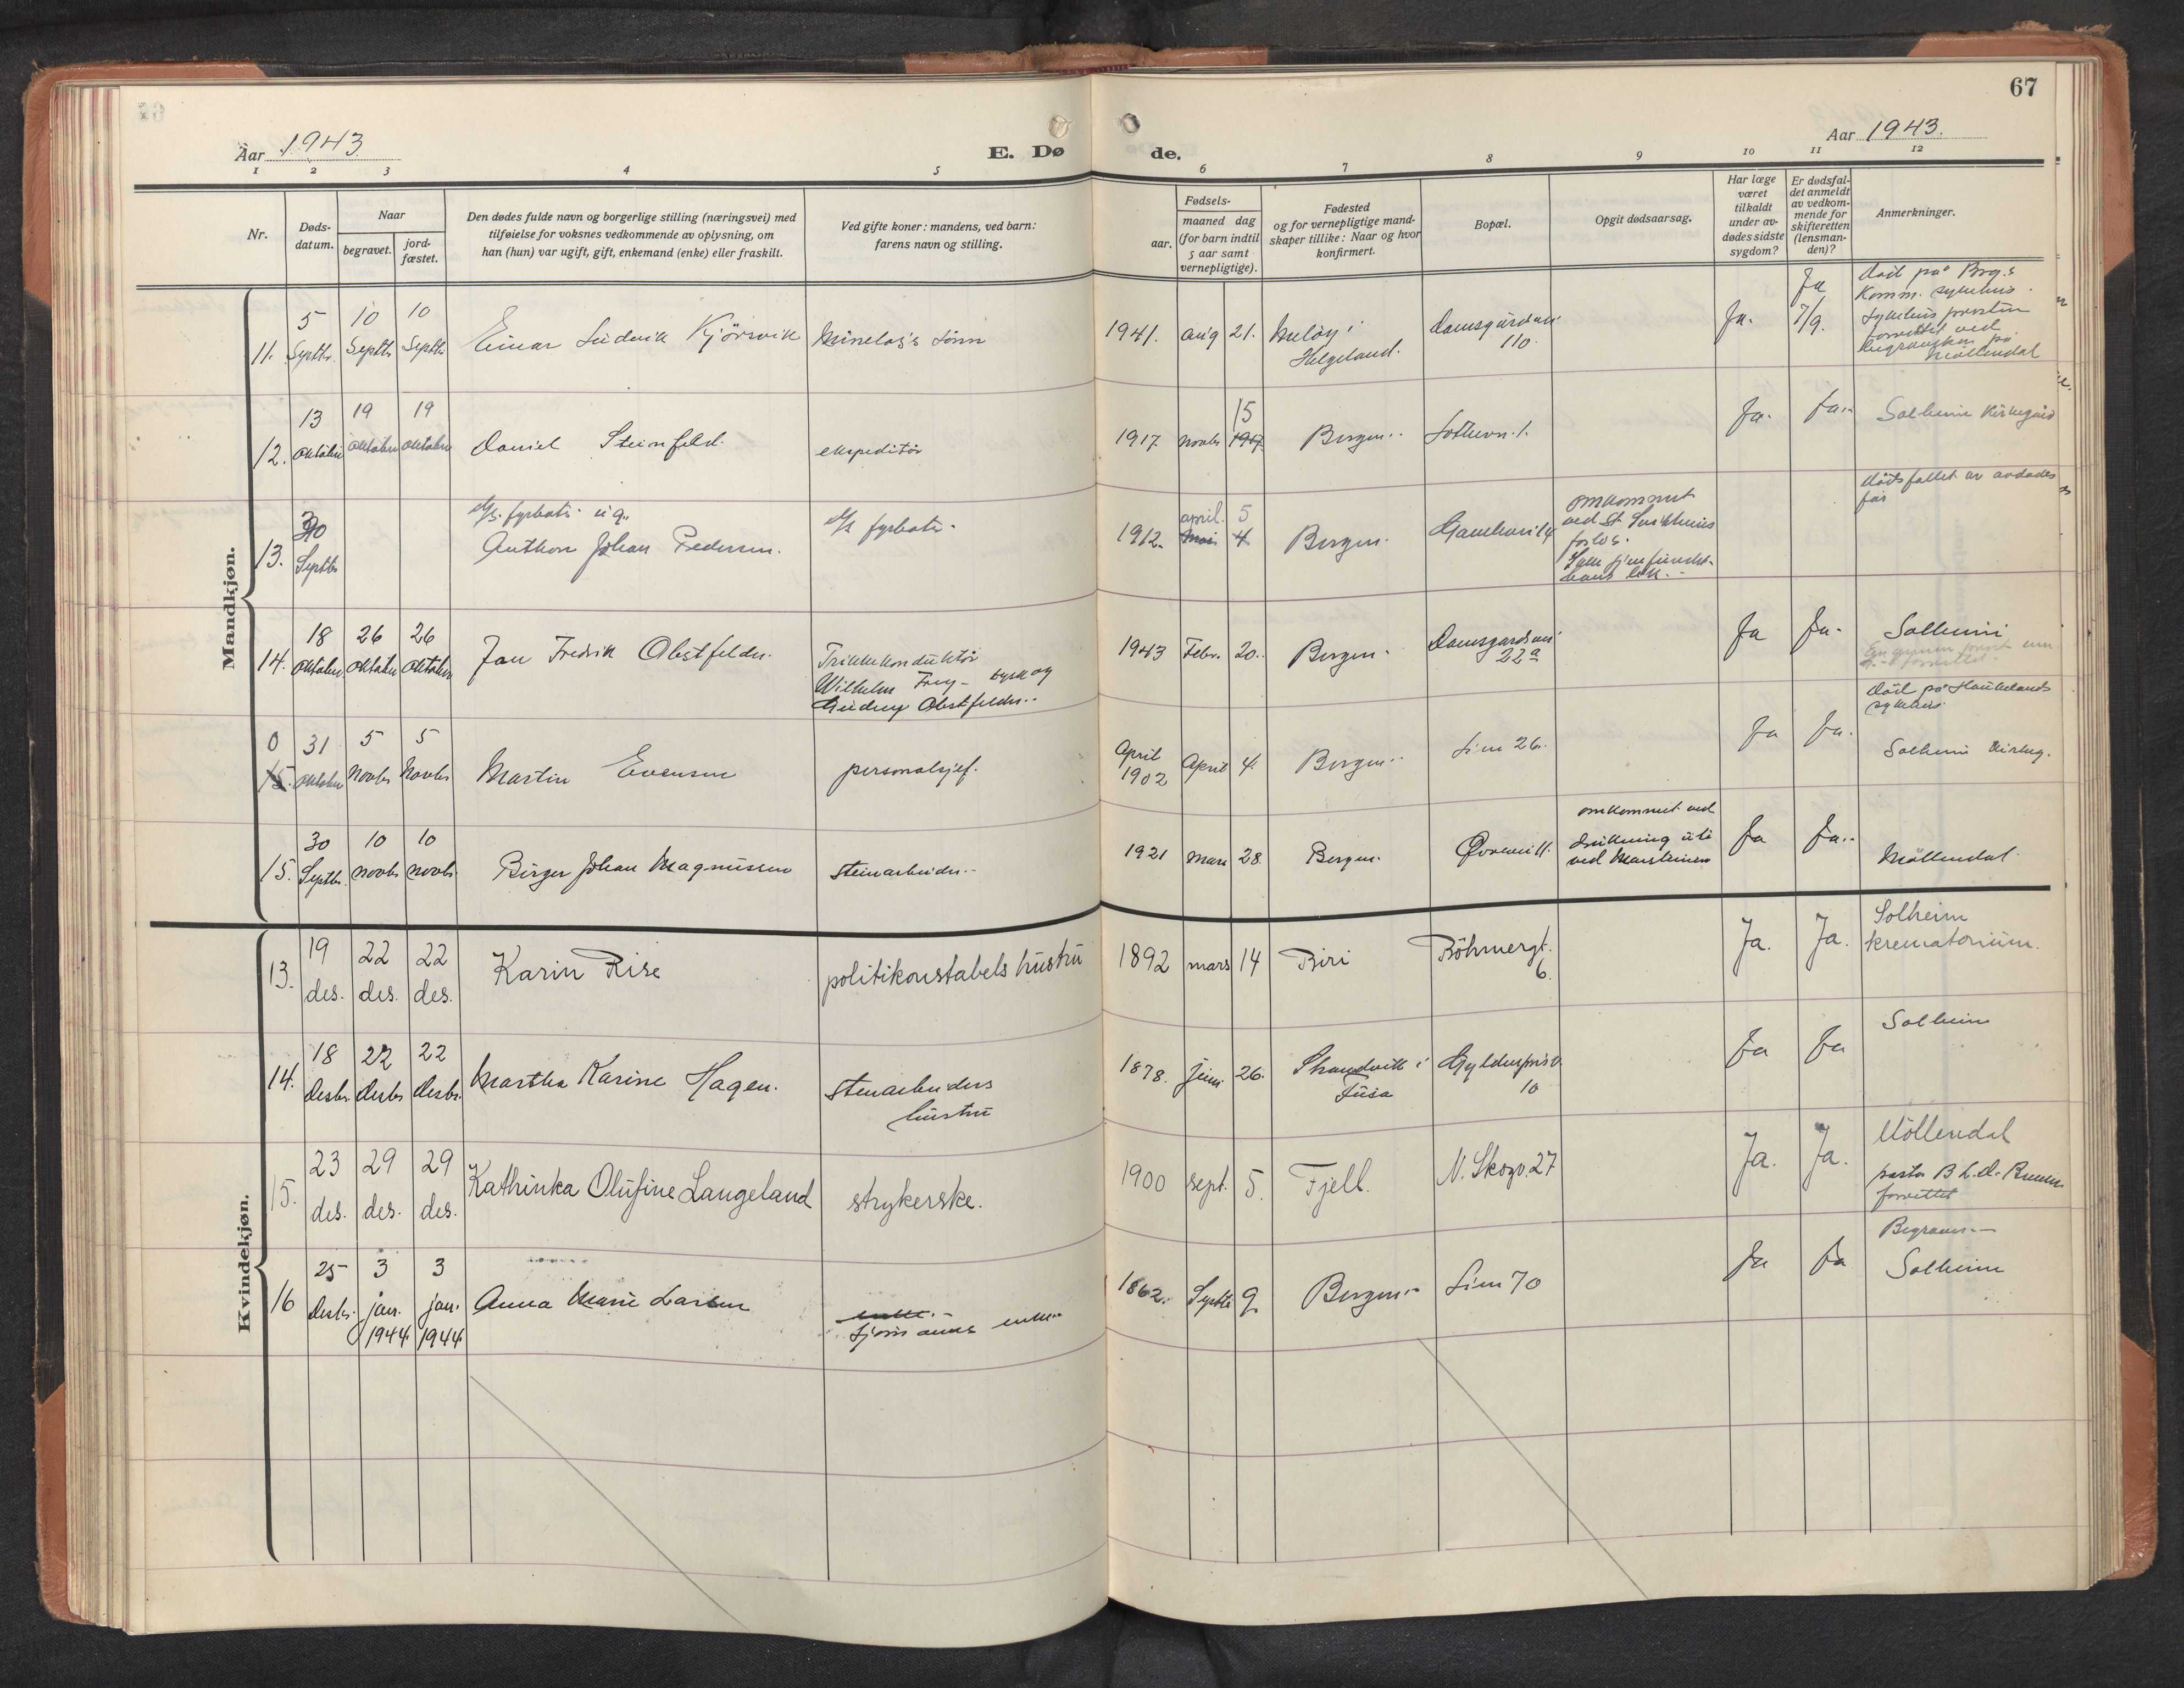 67
Aar 1943
E. Dø
de.
Aar 1943.
1 2 3 4 5 6 7 8 9 10 11 12
Nr.
Døds-
datum.
Naar
begravet.
jord-
fæstet.
Den dødes fulde navn og borgerlige stilling (næringsvei) med
tilføielse for voksnes vedkommende av oplysning, om
han (hun) var ugift, gift, enkemand (enke) eller fraskilt.
Ved gifte koner: mandens, ved barn:
farens navn og stilling.
Fødsels-
aar.
maaned dag
(for barn indtil
5 aar samt
vernepligtige).
Fødested
og for vernepligtige mand-
skaper tillike: Naar og hvor
konfirmert.
Bopæl.
Opgit dødsaarsag.
Har læge
været
tilkaldt
under av-
dødes sidste
sygdom?
Er dødsfal-
det anmeldt
av vedkom-
mende for
skifteretten
(lensman-
den)?
Anmerkninger.
Mandkjøn.
11. 5 Septbr. 10 Septbr 10 Septbr Einar Ludvik Kjørsvik sønn 1941. aug 21. i Helgeland. Damsgårdsvei 110. Ja. Ja 7/9. død på Brg.s Komm. sykehus. Sykehus presten forrettet ved begravelsen på Møllendal
12. 13 oktober 19 oktober 19 oktober Daniel Steinfeld. ekspeditør 1917. novbr 15 1917. Bergen. Ja. Ja. Solheim Kirkegård
13. 30 Septbr fyrbøter ug. Anthon Johan Pedersen. fyrbøter 1912. april 5 mai 4 Bergen. omkommet ved forlis. dødsfallet av avdødes far
14. 18 oktober 26 oktober 26 oktober Jan Fredrik Obstfelder. Trikkekonduktør Wilhelm Frey - tysk og Obstfelder. 1943 Febr. 20. Bergen. Damsgårdsvei 22a Ja Ja. Solheim
0 15. 31 oktober 5 novbr 5 novbr Martin Evensen personalsjef. April 1902 April 4. Bergen. Lien 26. Ja Ja. død på Haukelands sykehus. Solheim Kirkeg.
15. 30 Septbr. 10 novbr 10 novbr. Birger Johan Magnussen steinarbeider. 1921 mars 28. Bergen. omkommet ved drukning ute ved Marsteinen Ja Ja. Møllendal.
Kvindekjøn.
13. 19 des. 22 des. 22 des. Karin Rise politikonstabels hustru 1892 mars 14 Biri Böhmergt. 6. Ja. Ja. Solheim krematorium.
14. 18 Desbr. 22 Desbr 22 Desbr. Martha Karine Hagen. stenarbeiders hustru 1878. juni 26. Strandvik i Fusa Gyldenprisv. 10 Ja Ja Solheim
15. 23 des. 29 des. 29 des. Kathinka Olufine Langeland strykerske. 1900 sept. 5. Fjell. N. Skogv. 27 Ja. Ja. Möllendal forrettet
16 25 Desbr. 3 jan. 1944 3 jan. 1944 Anna Marie Larsen sjømanns enke. 1862. Septbr 9. Bergen. Lien 70 Ja Ja Solheim